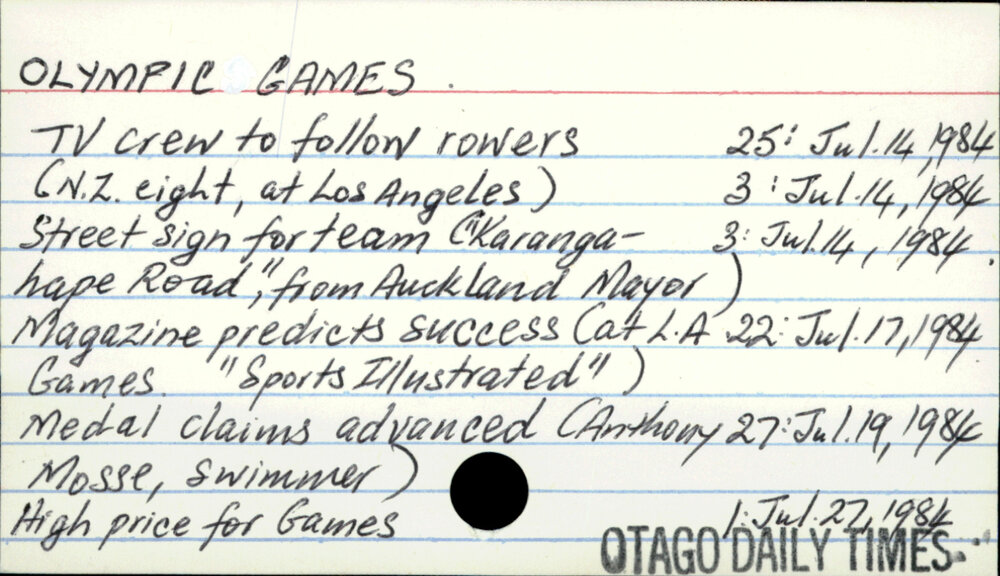 OLYMPIC GAMES.
TV crew to follow rowers 25: Jul.14,1984
(N.Z. eight, at Los Angeles) 3: Jul.14,1984
Street sign for team ("Karanga- 3: Jul.14, 1984.
hape Road", from Auckland Mayor)
Magazine predicts success (at L.A 22: Jul.17,1984
Games. "Sports Illustrated")
Medal claims advanced (Anthony 27: Jul.19,1984
Mosse, swimmer)
High price for Games 1: Jul.27,1984
OTAGO DAILY TIMES